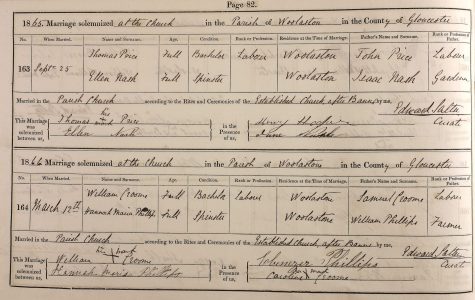 Page 82.
1865. Marriage solemnized at the Church in the Parish of Woolaston in the County of Gloucester
No. When Married. Name and Surname. Age. Condition. Rank or Profession. Residence at the Time of Marriage. Father's Name and Surname. Rank or Profession of Father.
163 Sept 25 Thomas Price Full Bachelor Labour Woolaston John Price Labour
Ellen Nash Full Spinster Woolaston Isaac Nash Gardener
Married in the Parish Church according to the Rites and Ceremonies of the Established Church, after Banns by me,
Edward
Curate
This Marriage was solemnized between us, Thomas his mark Price
Ellen Nash
in the Presence of us, Henry Hooper
Jane
1866 Marriage solemnized at the Church in the Parish of Woolaston in the County of Gloucester
No. When Married. Name and Surname. Age. Condition. Rank or Profession. Residence at the Time of Marriage. Father's Name and Surname. Rank or Profession of Father.
164 March 12th William Crooms Full Bachelor Labour Woolaston Samuel Crooms Labour
Hannah Maria Phillips Full Spinster Woolaston William Phillips Farmer
Married in the Parish Church according to the Rites and Ceremonies of the Established Church, after Banns by me,
Edward
Curate
This Marriage was solemnized between us, William mark Crooms
Hannah Maria Phillips
in the Presence of us, Ebenezer Phillips
Caroline mark Crooms